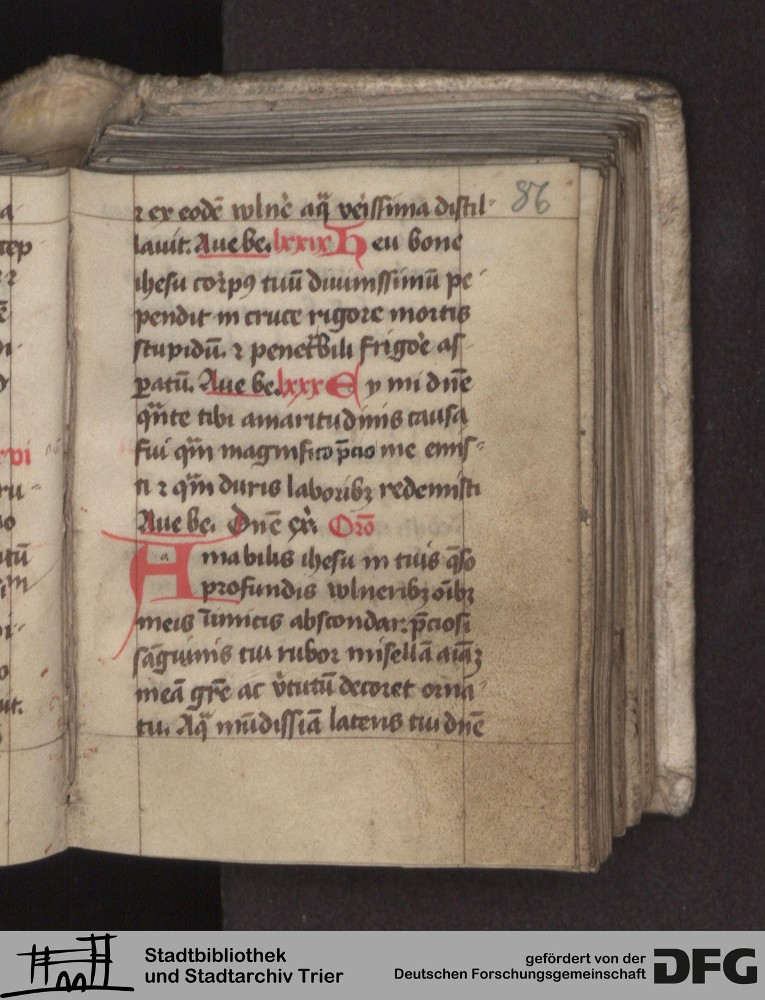 86
⁊ ex eodē wlnė aq̄ veıssima distil-
lauit. Aue be. lxxix Heu bone
ihesu corpꝯ tuū diuinissimū pe-
pendit in cruce rigore mortis
stupidū. ⁊ penetbili frigoe as-
ꝑatū. Aue be. lxxx Ey mi dn̄e
qn̄te tibi amaritudinis causa
fui qm̄ magnifico p̄cio me emis-
ti ⁊ qm̄ duris laboribꝫ redemisti
Aue be. Dn̄e ex̄. Orō
Amabilis ihesu in tuis q̄so
profundis wlneribꝫ oībꝫ
meis īimicis abscondar. p̄ciosi
sāguinis tui rubor misellā aīaꝫ
meā grē ac v̇tutū decoret orna-
tu. Aq̄ mūdissiā lateris tui dn̄e
tep
rvi
ru-
tū
ut.
Stadtbibliothek
und Stadtarchiv Trier
gefördert von der
Deutschen Forschungsgemeinschaft
DFG